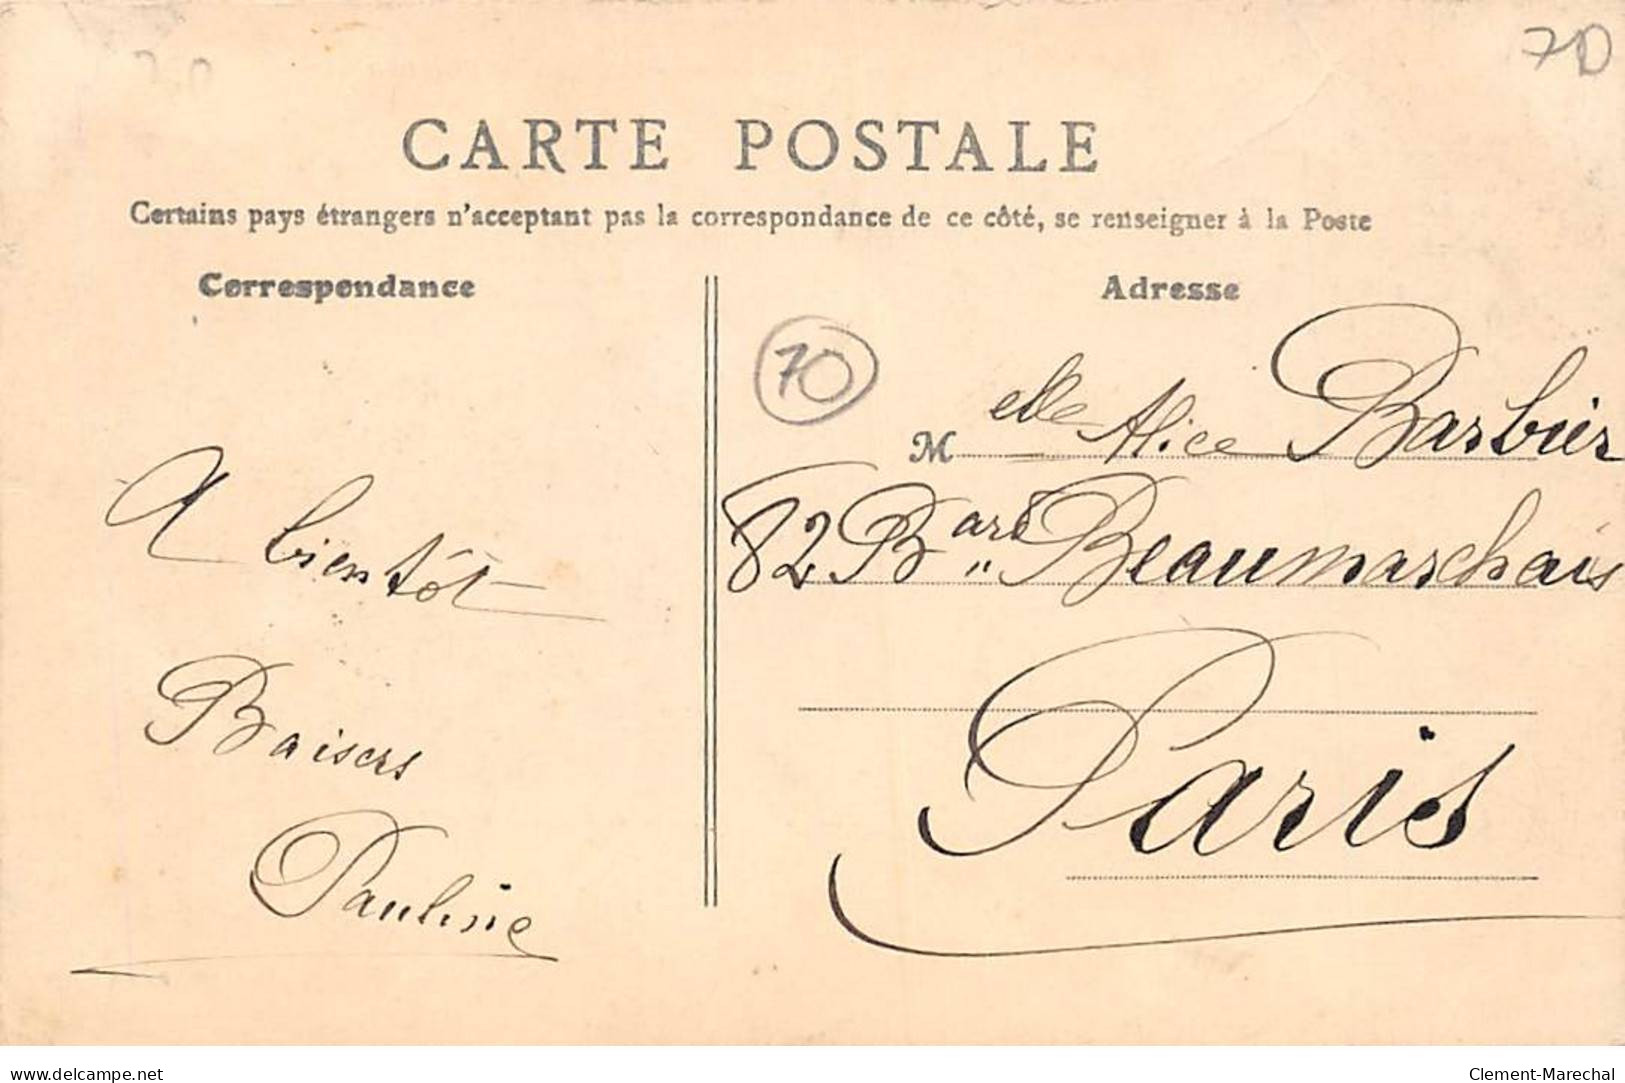 70
CARTE POSTALE
Certains pays étrangers n'acceptant pas la correspondance de ce côté, se renseigner à la Poste
Correspondance
A bientôt
Baisers
Pauline
Adresse
70
Melle Alice Barbier
82 Bard Beaumarchais
Paris
www.delcampe.net
Clement-Marechal